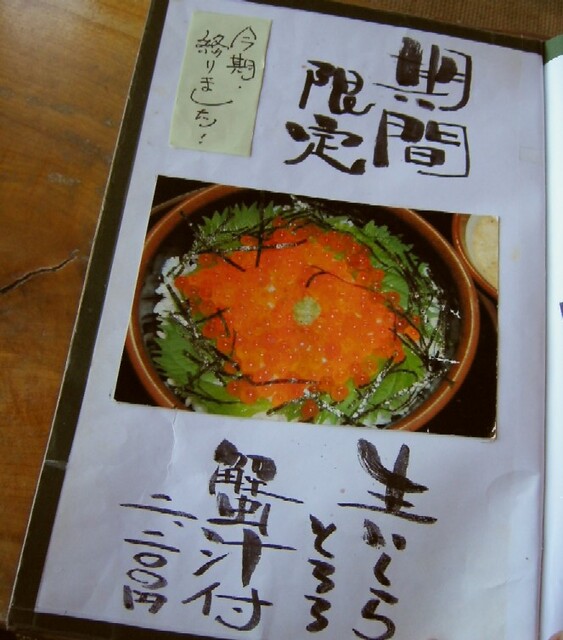 期間
限定
今期・
終りました！
生いくら
とろろ
蟹汁付
二、二〇〇円